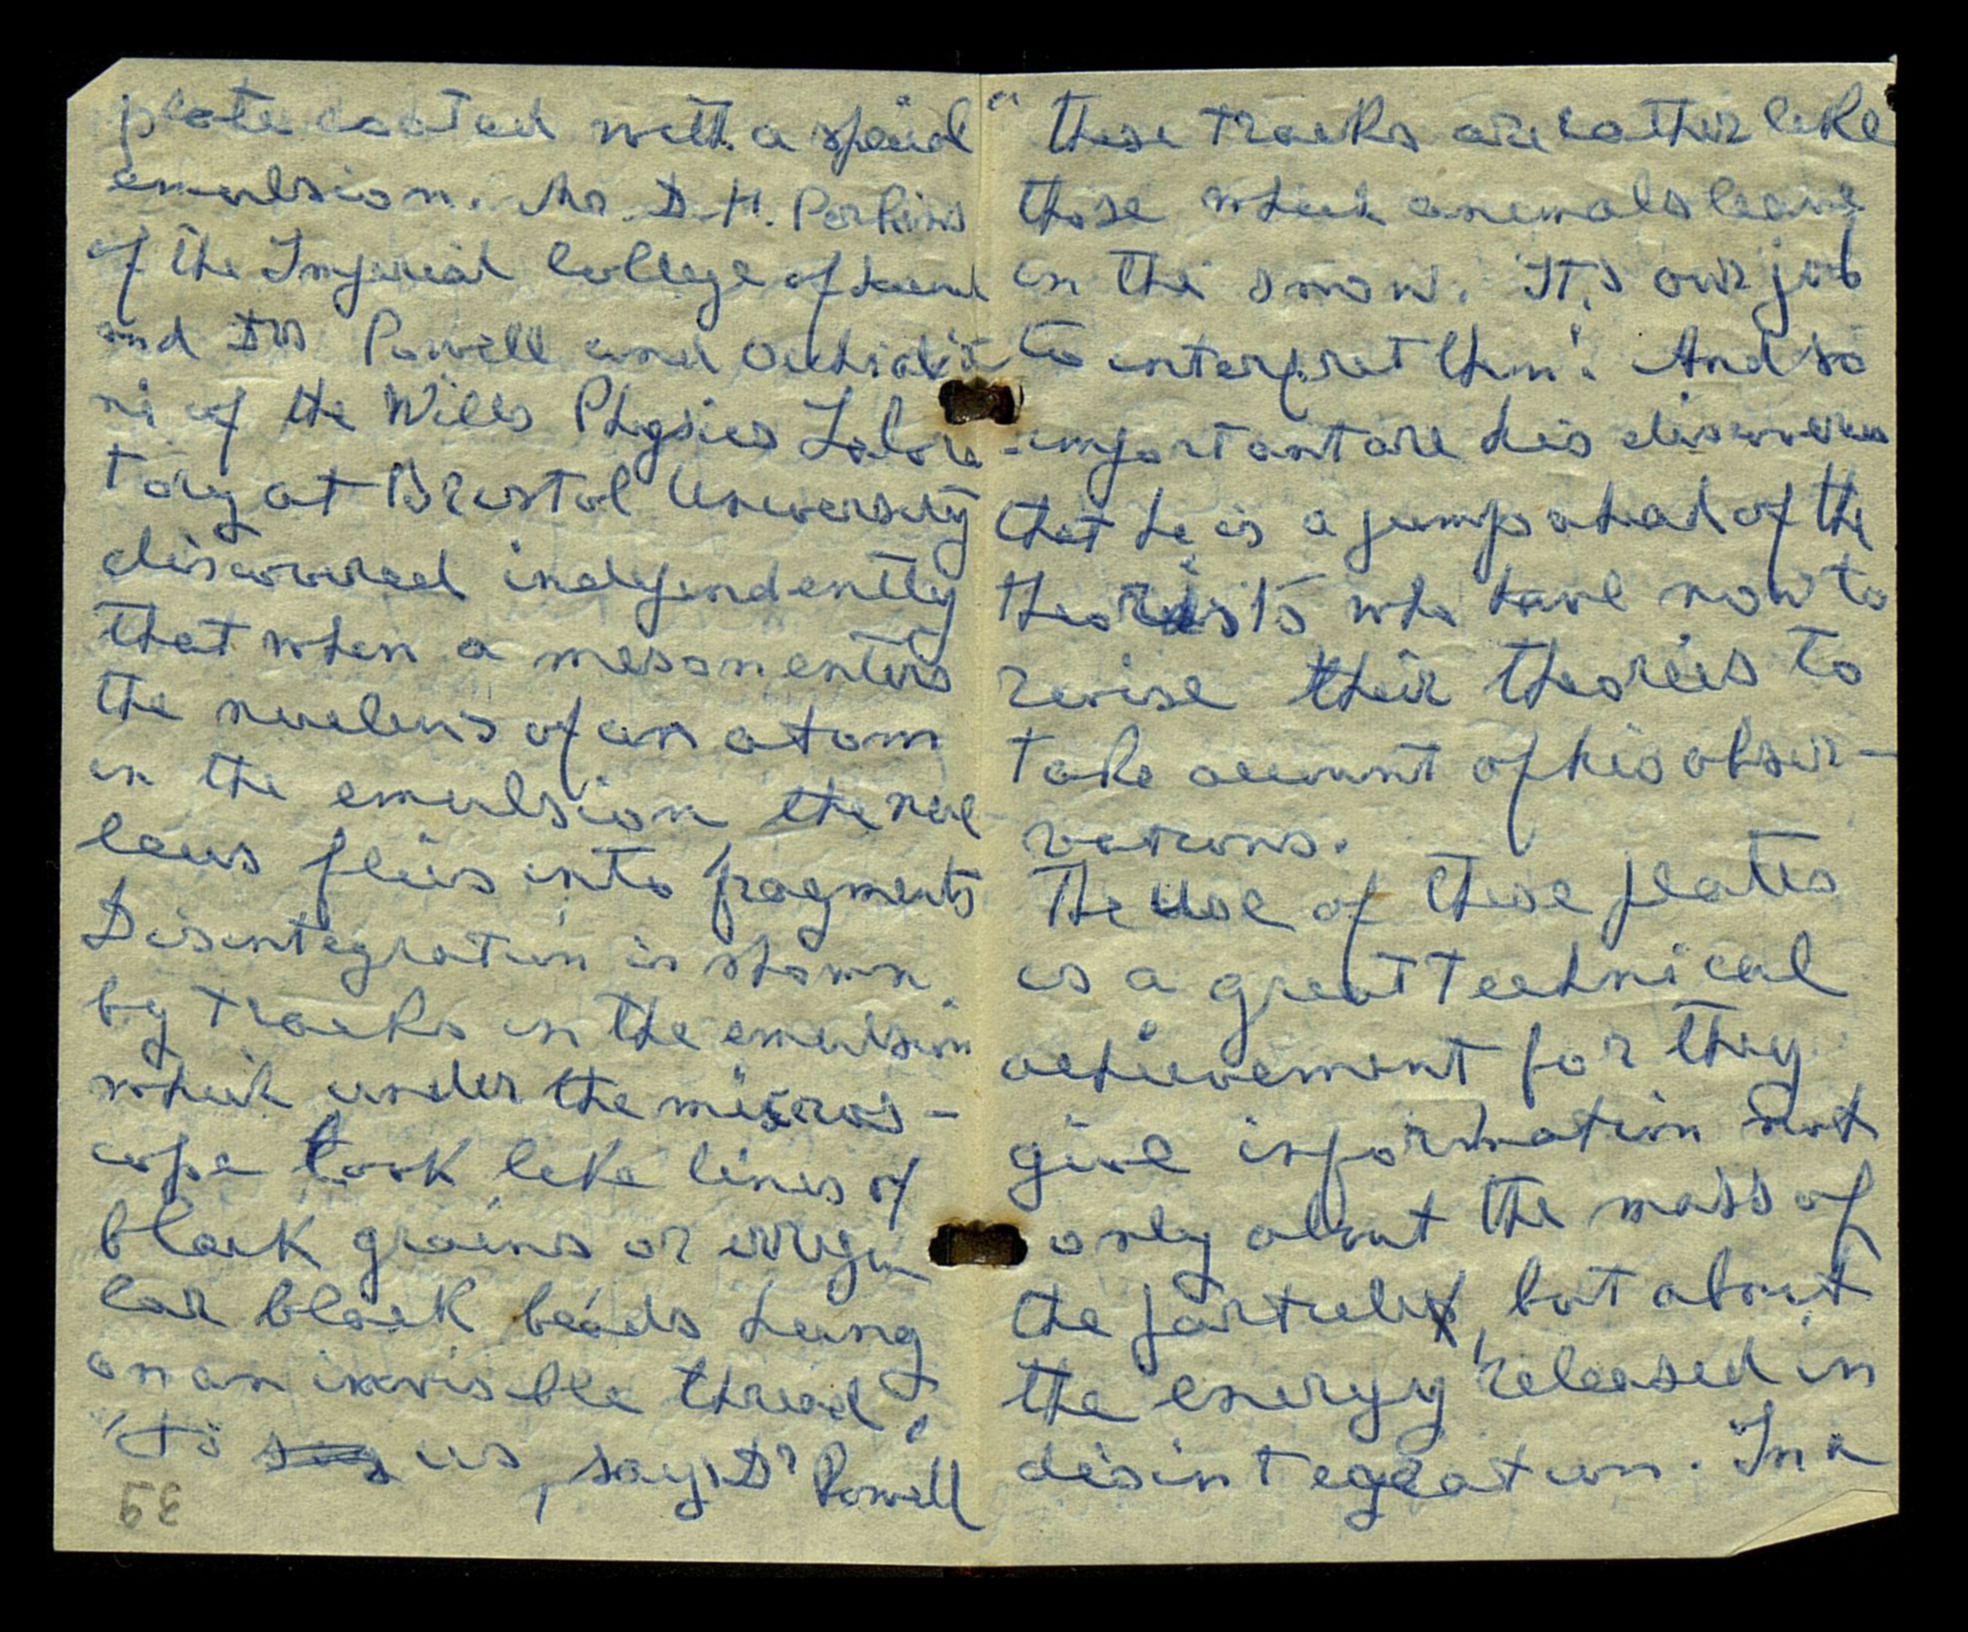 plate coated with a special
emulsion. Mr. D.H. Perkins
of the Imperial College of
and Drs Powell and Occhiali
ni of the Wills Physics Labora
tory at Bristol University
discovered independently
that when a meson enters
the nucleus of an atom
in the emulsion, the nuc
leus flies into fragments
Disintegration is shown
by tracks in the emulsion
which under the micros-
cope look like lines of
black grains or irregu
lar black beads hung
on an invisible thread.
"To us, says Dr Powell
39
"these tracks are rather like
those which animals leave
in the snow. It's our job
to interpret them". And so
important are his discoveries
that he is a jump ahead of the
theorists who have now to
revise their theories to
take account of his obser-
vations.
The use of these plates
is a great technical
achievement for they
give information not
only about the mass of
the particles, but about
the energy released in
disintegration. In a